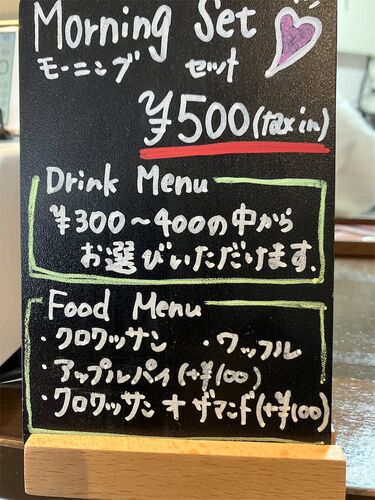 Morning Set
モーニング セット
¥500(tax in)
Drink Menu
¥300～400の中から
お選びいただけます.
Food Menu
・クロワッサン ・ワッフル
・アップルパイ(+¥100)
・クロワッサンオザマンド(+¥100)